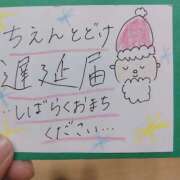 ちえんとどけ
遅延届
…しばらくおまち
ください…